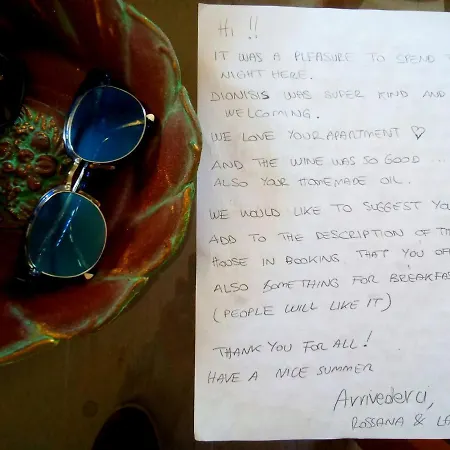 HI !!
IT WAS A PLEASURE TO SPEND
NIGHT HERE.
DIONISIS WAS SUPER KIND AND
WELCOMING.
WE LOVE YOUR APARTMENT ♡
AND THE WINE WAS SO GOOD ..
ALSO YOUR HOMEMADE OIL.
WE WOULD LIKE TO SUGGEST YOU
ADD TO THE DESCRIPTION OF
HOUSE IN BOOKING THAT YOU
ALSO SOMETHING FOR BREAKFAS
(PEOPLE WILL LIKE IT)
THANK YOU FOR ALL!
HAVE A NICE SUMMER
Arrivederci,
ROSSANA &